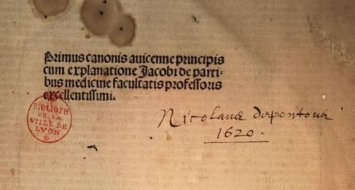 Primus canonis auicenne principis
cum explanatione Jacobi de parti-
bus medicine facultatis professoris
excellentissimi.
BIBLIOTH
DE LA
VILLE DE
LYON
Nicolaus
1620.